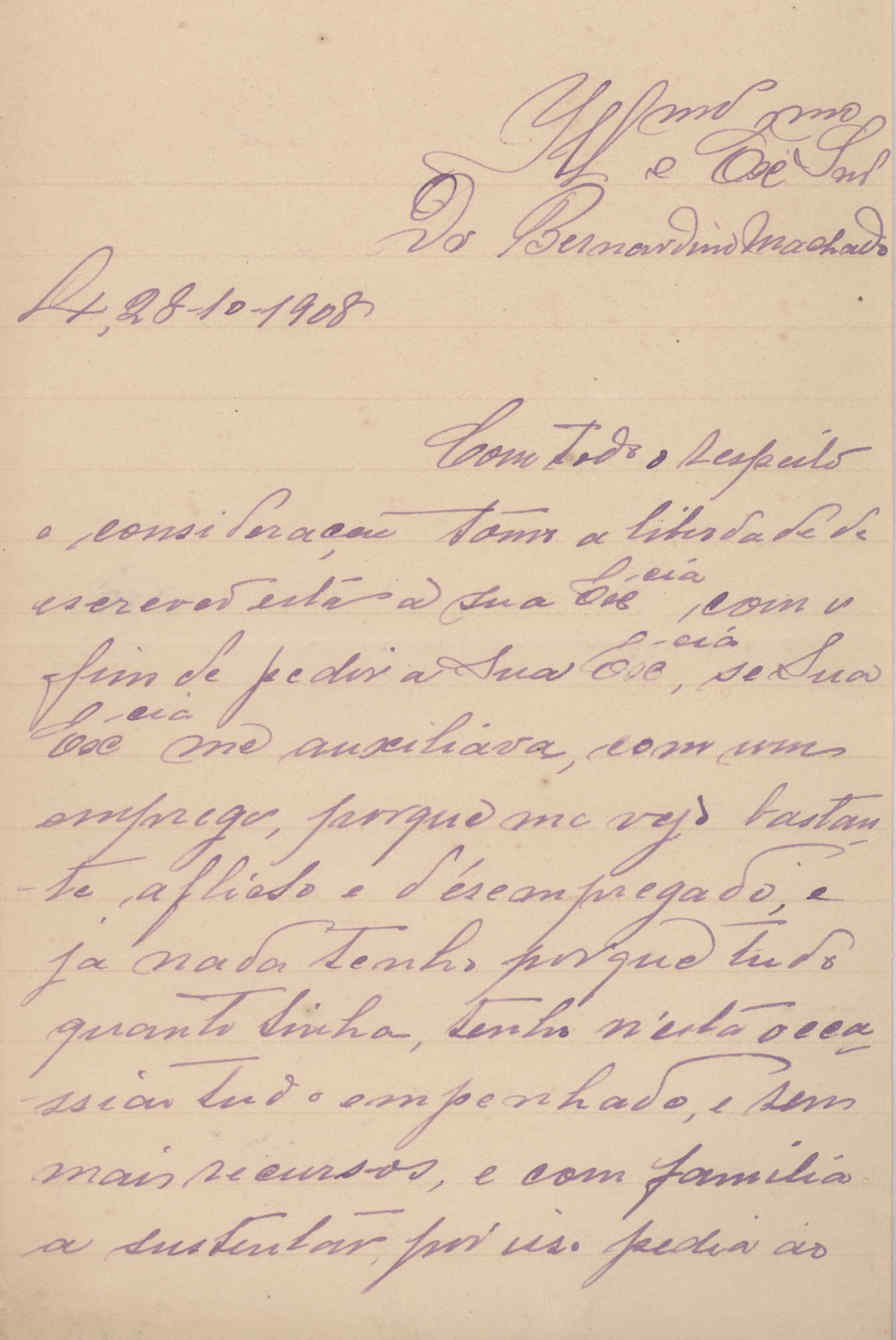 Illmo e Exmo Snr
Dr Bernardino Machado
Lx, 28-10-1908
Com todo o respeito
e consideração tomo a liberdade de
escrever esta a sua Excia, com o
fim de pedir a Sua Excia, se Sua
Excia me auxiliava, com um
emprego, porque me vejo bastan-
-te aflicto e désempregado, e
ja nada tenho porque tudo
quanto tinha, tenho n'esta occa-
-ssião tudo empenhado, e sem
mais recursos, e com familia
a sustentar, por isso pedia ao